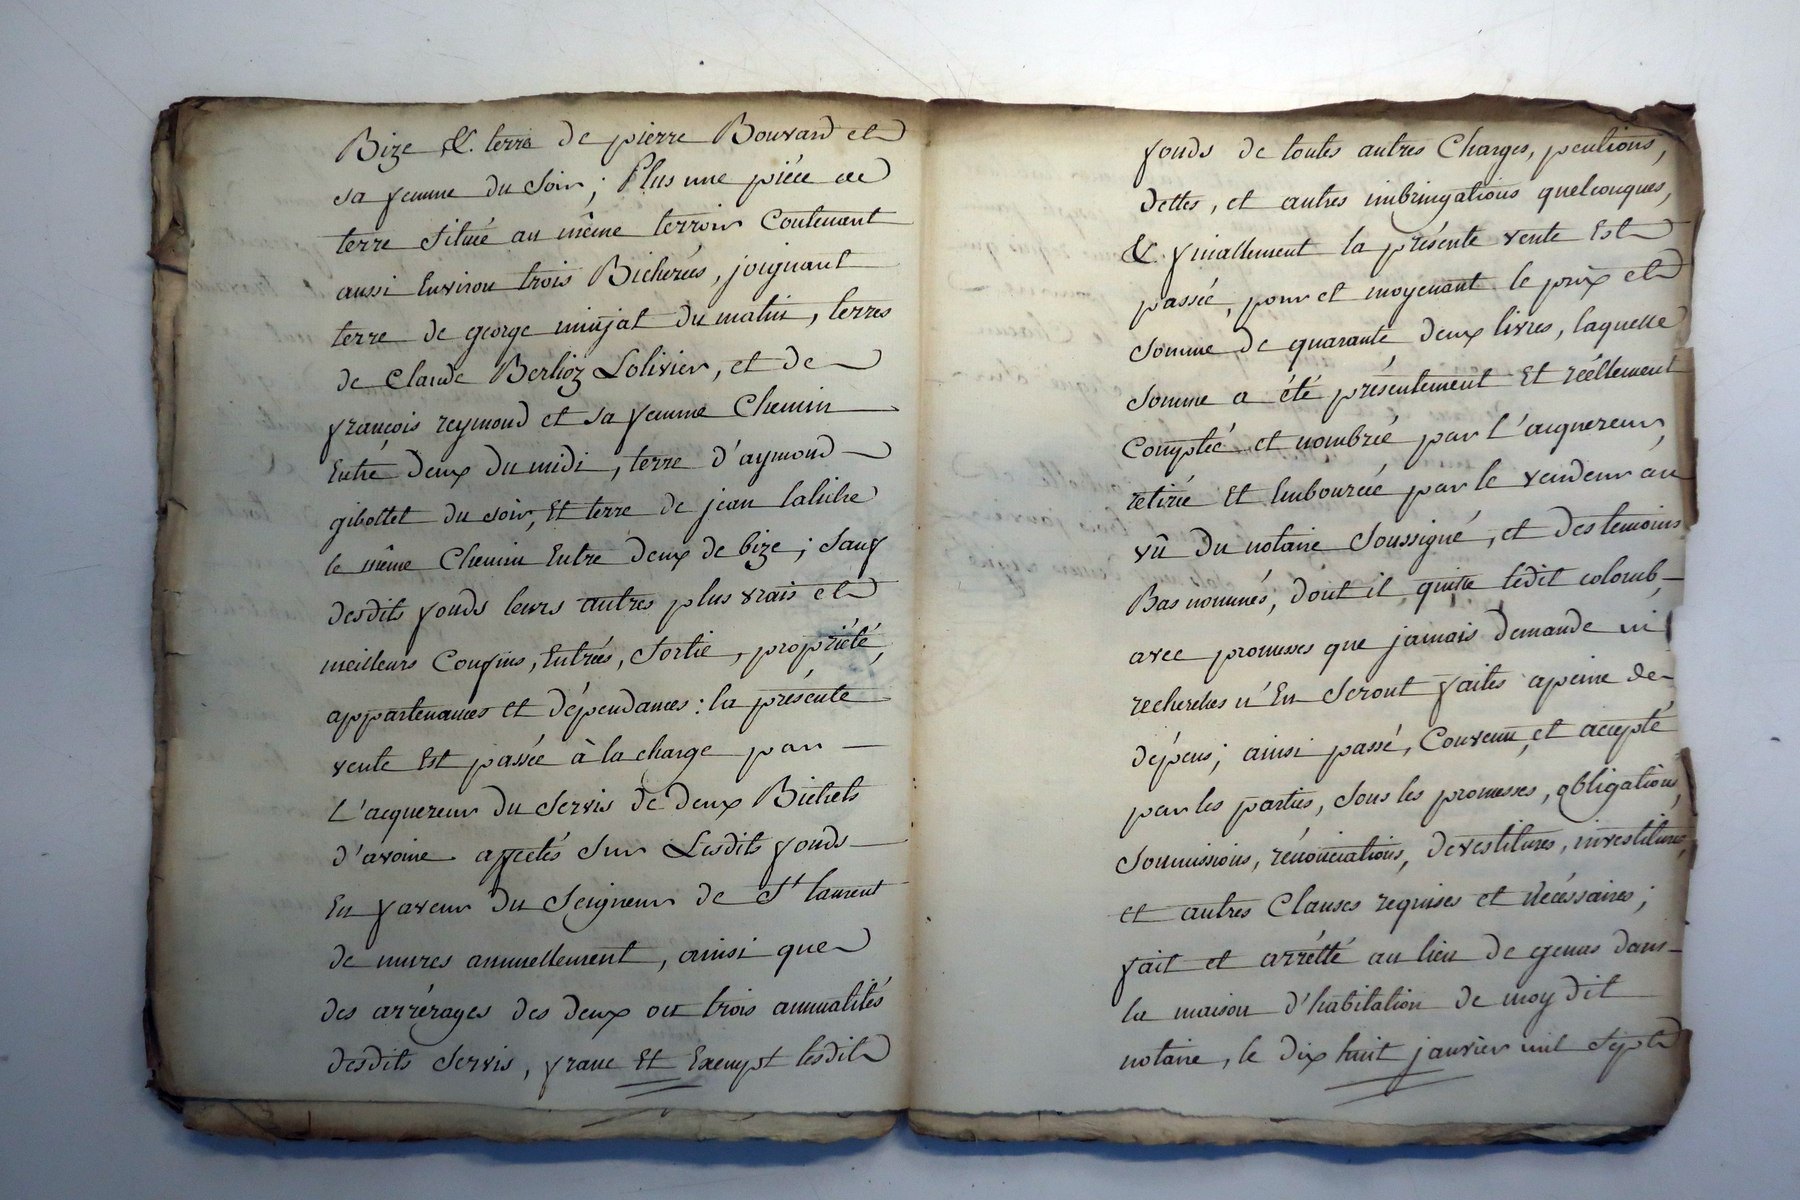 Bize &. terre de pierre Bouvard et
sa femme du Soir; Plus une piéce de
terre située au même terroir Contenant
aussi Environ trois Bicherées, joignant
terre de george minjat du matin, terres
de Claude Berlioz Lolivier, et de
françois reymond et sa femme Chemin
Entre deux du midi, terre d'aymond
gibottet du soir, Et terre de jean
le même Chemin Entre deux de bize; Sauf
desdits fonds leurs autres plus vrais et
meilleurs Confins, Entrées, Sortie, propriété,
appartenances et dépendances: la présente
vente Est passée à la charge par
L'acquereur du Servis de deux Bichets
d'avoine affectés Sur Lesdits fonds
En faveur du Seigneur de St laurent
de mures annuellement, ainsi que
des arrérages des deux ou trois annualités
desdits Servis, franc Et Exempt lesdit
fonds de toutes autres Charges, pentions,
dettes, et autres imbringations quelconques,
&. finallement la présente vente Est
passée, pour et moyenant le prix et
Somme de quarante deux livres, laquelle
Somme a été présentement Et réellement
Comptée et nombrée par L'acquereur,
retirée Et Emboursée par le vendeur au
vû du notaire Soussigné, et des temoins
Bas nommés, dont il quitte ledit colomb,
avec promesses que jamais demande ni
recherches n'En Seront faites apeine de
dépens; ainsi passé, Convenu, et accepté
par les parties, Sous les promesses, obligations,
Soumissions, rénonciations, devestitures, investitures,
et autres Clauses requises et nécéssaires;
fait et arrétté au lieu de genas dans
la maison d'habitation de moy dit
notaire, le dix huit janvier mil Sept